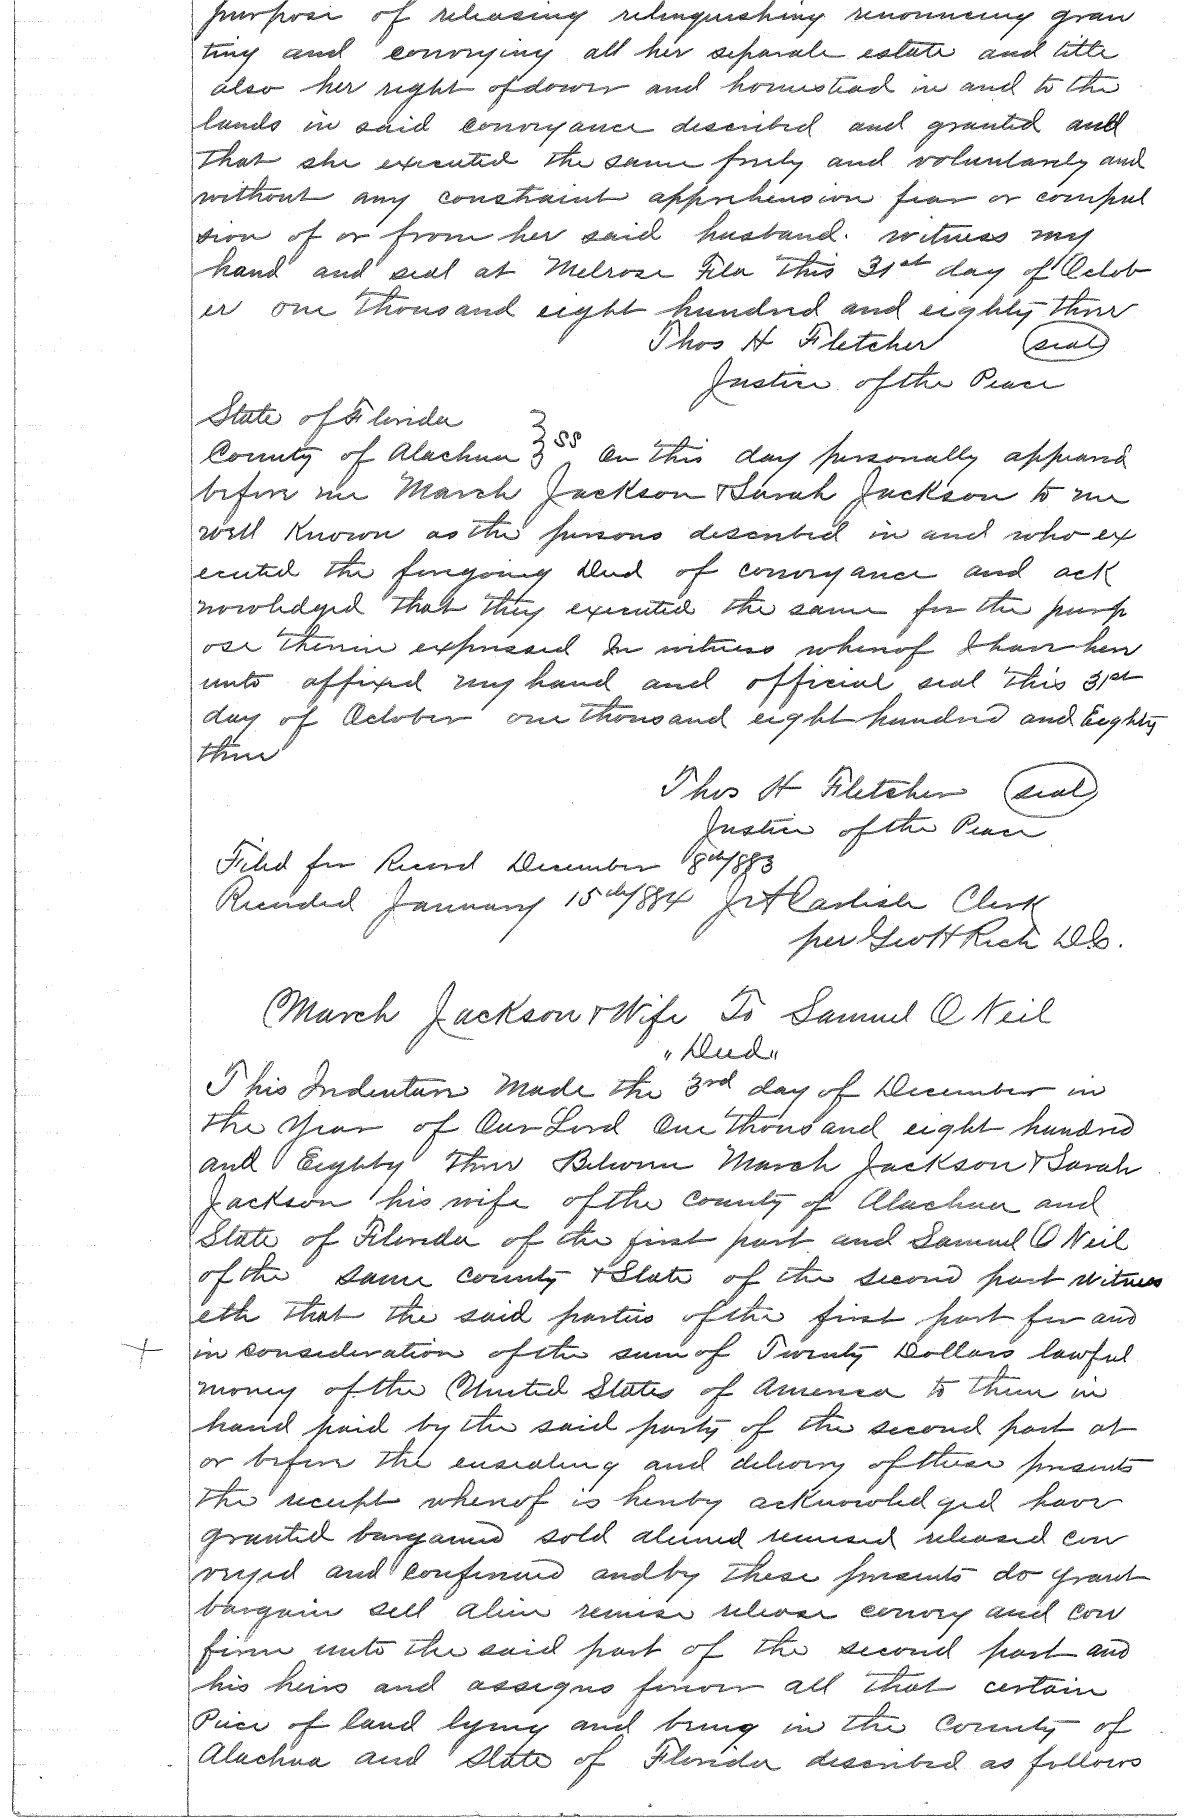 purpose of releasing relinquishing renouncing gran
ting and conveying all her separate estate and title
also her right of dower and homestead in and to the
lands in said conveyance described and granted and
that she executed the same freely and voluntarely and
without any constraint apprehension fear or compul
sion of or from her said husband. witness my
hand and seal at Melrose Fla this 31st day of Octob
er one thousand eight hundred and eighty three
Thos H Fletcher (seal)
Justice of the Peace
State of Florida
County of Alachua } SS On this day personally appeared
before me March Jackson & Sarah Jackson to me
well Known as the persons described in and who ex
ecuted the foregoing Deed of conveyance and ack
nowledged that they executed the same for the purp
ose therein expressed In witness whereof I have here
unto affixed my hand and official seal this 31st
day of October one thousand eight hundred and Eighty
three
Thos H Fletcher (seal)
Justice of the Peace
Filed for Record December 8th/883
Recorded January 15th/884 J A Carlisle Clerk
per Geo H Rich D.C.
March Jackson & Wife To Samuel O Neil
"Deed"
This Indenture Made the 3rd day of December in
the Year of Our Lord One thousand eight hundred
and Eighty three Between March Jackson & Sarah
Jackson his wife of the county of Alachua and
State of Florida of the first part and Samuel O Neil
of the same county & State of the second part witness
eth that the said parties of the first part for and
in consideration of the sum of Twenty Dollars lawful
money of the United States of America to them in
hand paid by the said party of the second part at
or before the ensealing and delivery of these presents
the receipt whereof is hereby acknowledged have
granted bargained sold aliened remised released con
veyed and confirmed and by these presents do grant
bargain sell alien remise release convey and con
firm unto the said part of the second part and
his heirs and assigns forever all that certain
Piece of land lying and being in the County of
Alachua and State of Florida described as follows